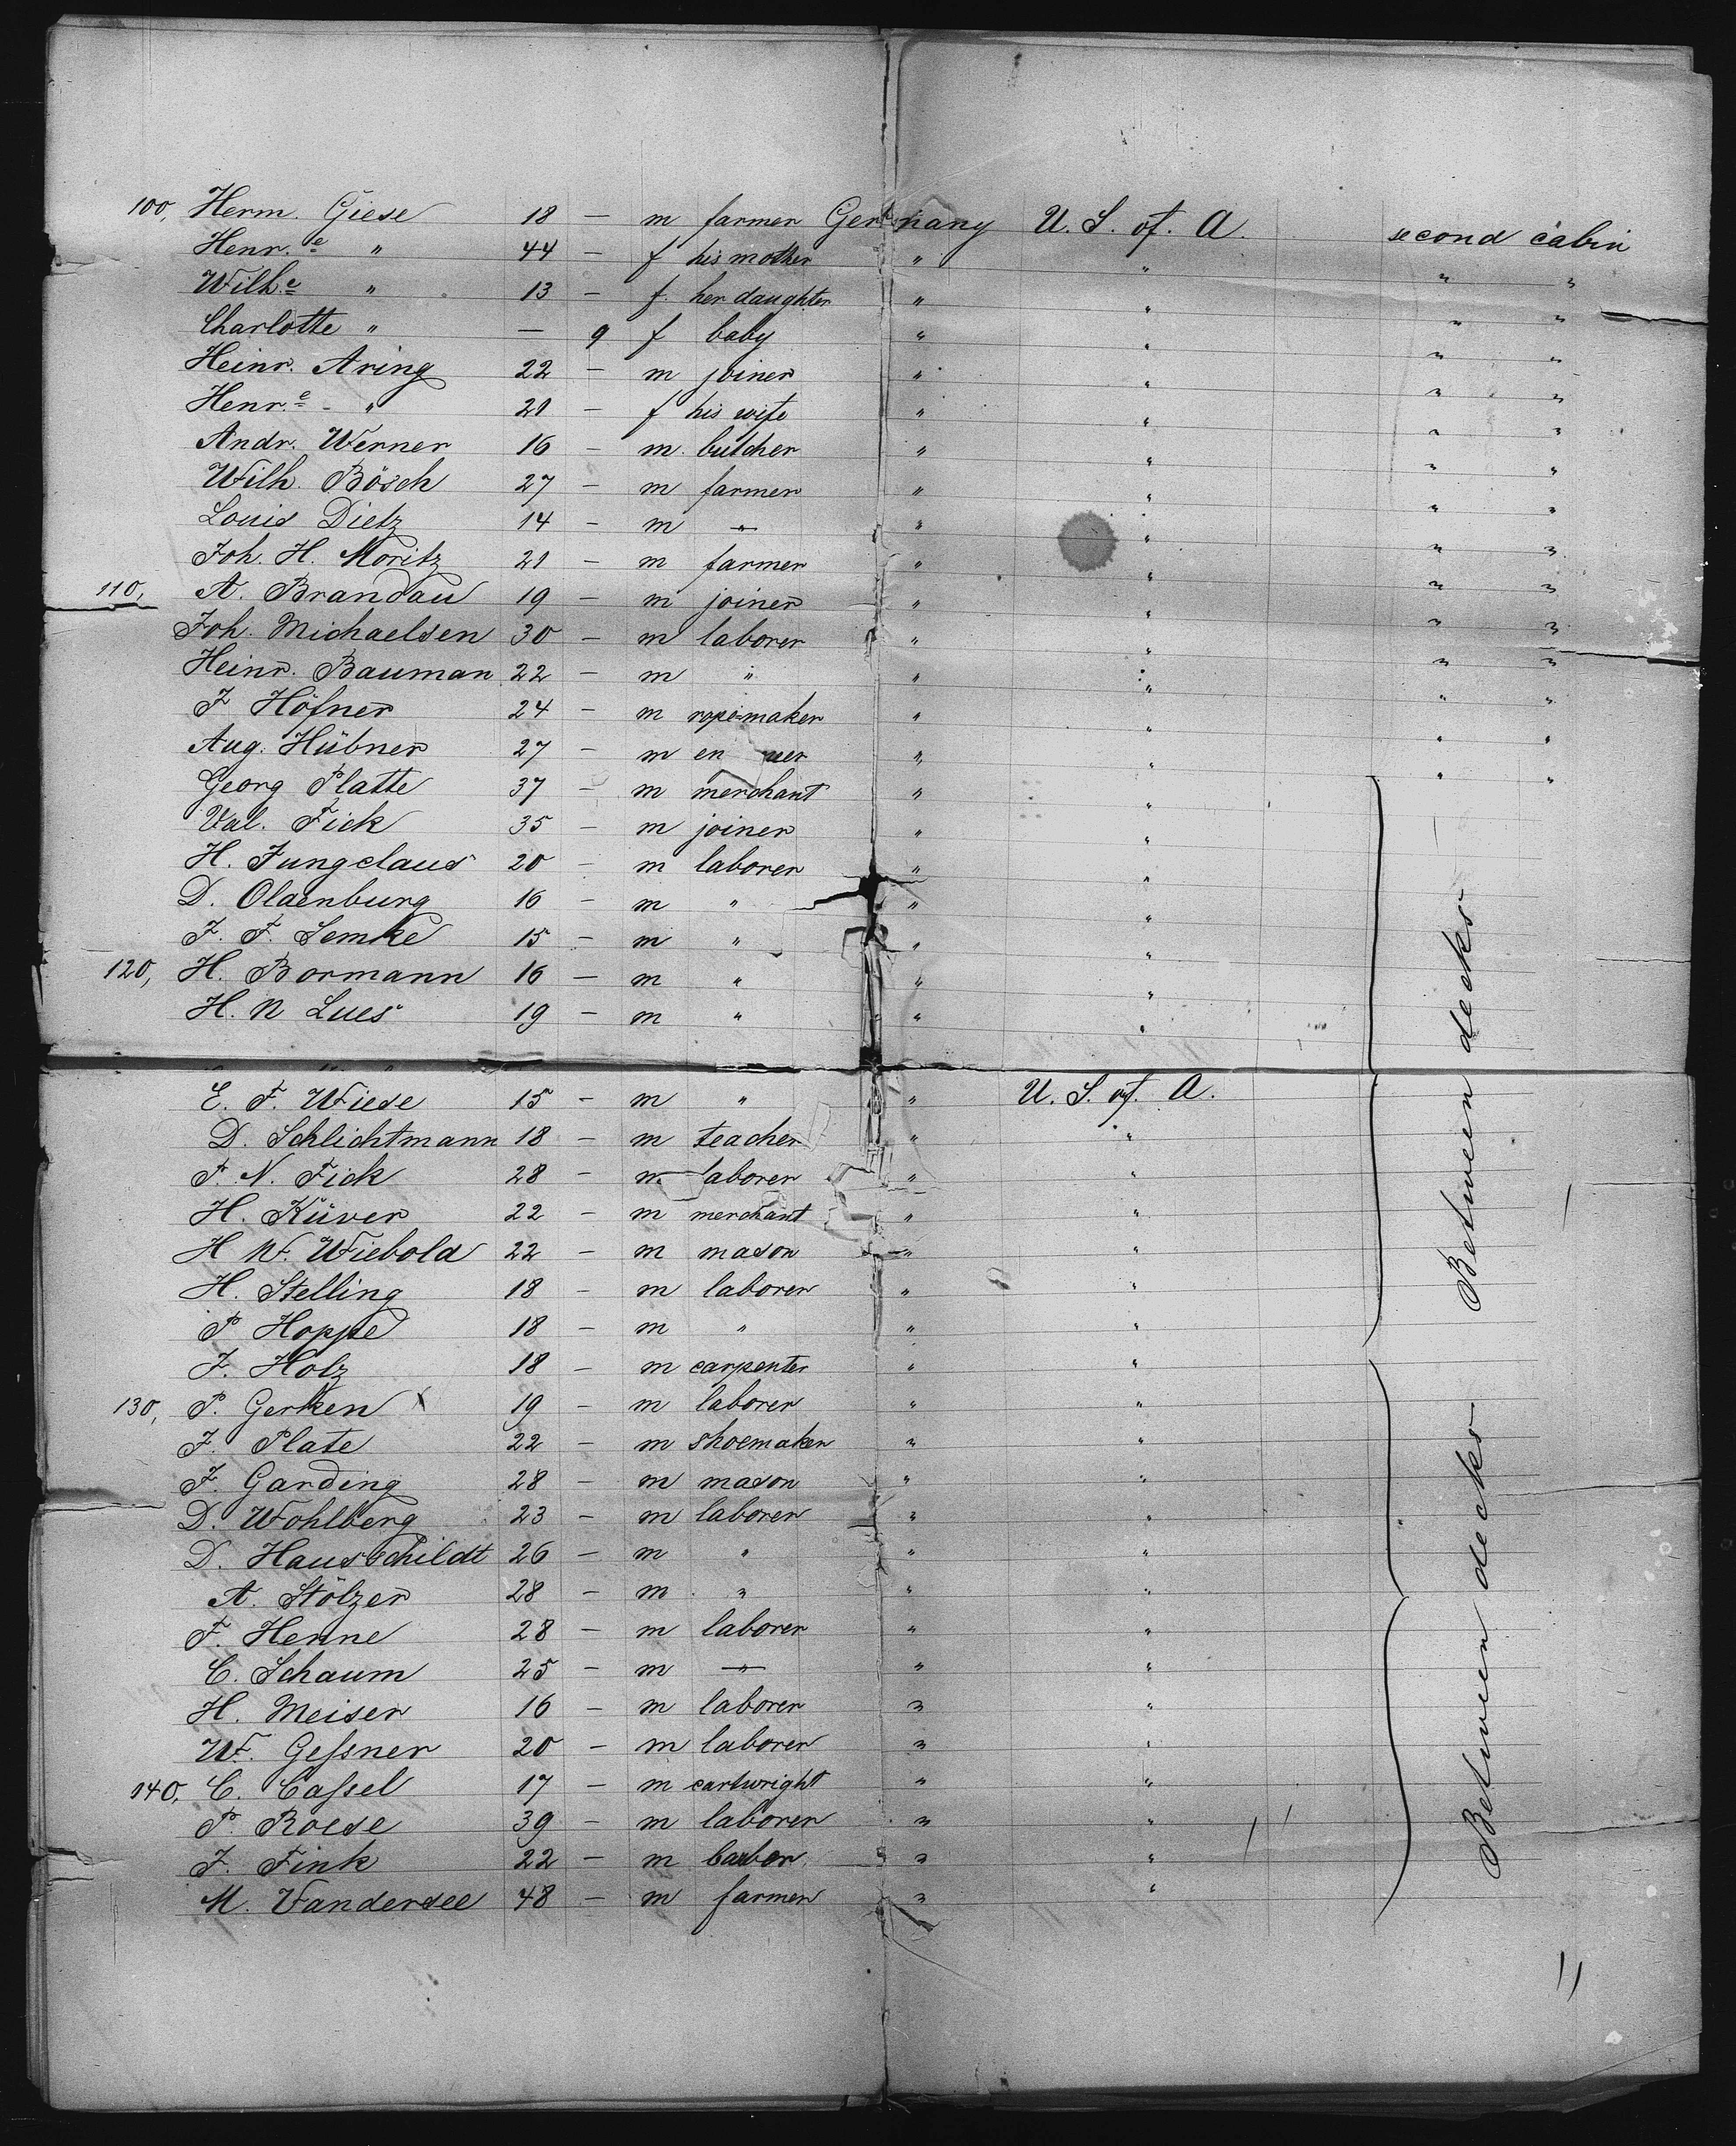 100, Herm. Giese 18 — m farmer Germany U. S. of. A. second cabin
Henr.e " 44 — f his mother " " " "
Wilh.e " 13 — f. her daughter " " " "
Charlotte " — 9 f baby " " " "
Heinr. Aring 22 — m joiner " " " "
Henr.e - " 21 — f his wife " " " "
Andr. Werner 16 — m. butcher " " " "
Wilh. Bösch 27 — m farmer " " " "
Louis Dietz 14 — m —"— " " " "
Joh. H. Moritz 21 — m farmer " " " "
110, A. Brandau 19 — m joiner " " " "
Joh. Michaelsen 30 — m laborer " " " "
Heinr. Bauman 22 — m " " " " "
F Höfner 24 — m rope-maker " " " "
Aug. Hübner 27 — m en uer " " " "
Georg Platte 37 — m merchant " "
Val. Fick 35 — m joiner " "
H. Jungclaus 20 — m laborer " "
D. Oldenburg 16 — m " " "
J. F. Lemke 15 — m " " "
120, H. Bormann 16 — m " " "
H. N Lues 19 — m " " "
Between decks
E. F. Wiese 15 — m " " U. S. of. A.
D. Schlichtmann 18 — m teacher " "
P. N. Fick 28 — m laborer " "
H. Küver 22 — m merchant " "
H W. Wiebold 22 — m mason " "
H. Stelling 18 — m laborer " "
P Hoppe 18 — m " " "
J. Holz 18 — m carpenter " "
130, P. Gerken x 19 — m laborer " "
J. Plate 22 — m shoemaker " "
J. Garding 28 — m mason " "
D. Wohlberg 23 — m laborer " "
D. Hauschildt 26 — m " " "
A. Stölzer 28 — m " " "
F. Henne 28 — m laborer " "
C. Schaum 25 — m —"— " "
H. Meiser 16 — m laborer " "
W. Geſsner 20 — m laborer " "
140, C. Caſsel 17 — m cartwright " "
P. Roese 39 — m laborer " "
J. Fink 22 — m barber " "
M. Vandersee 48 — m farmer " "
Between decks
11